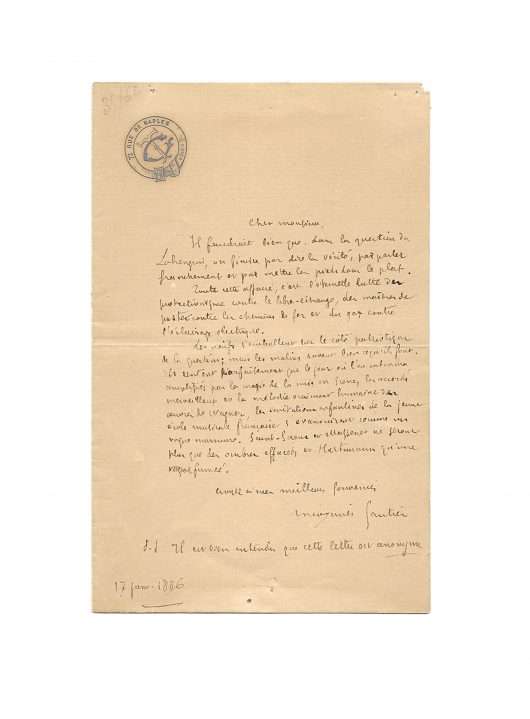 72 RUE DE NAPLES
Cher monsieur,
Il faudrait bien que, dans la question du
Lohengrin, on finisse par dire la vérité, par parler
franchement et par mettre les pieds dans le plat.
Toute cette affaire, c'est l'éternelle lutte du
protectionnisme contre le libre-échange, des maîtres de
poste contre les chemins de fer et du gaz contre
l'éclairage électrique.
Les naïfs s'emballent sur le côté patriotique
de la question; mais les malins savent bien ce qu'ils font.
Ils sentent parfaitement que le jour où l'on entendra
amplifiés par la magie de la mise en scène, les accords
merveilleux et la mélodie vraiment humaine des
œuvres de Wagner, les imitations enfantines de la jeune
école musicale française s'évanouiront comme un
vague murmure. Saint-Saëns et Massenet ne seront
plus que des ombres effacées et Hartmann qu'une
vague fumée.
à mes meilleurs souvenirs
Gautier
P.S Il est bien entendu que cette lettre est anonyme
17 janv. 1886